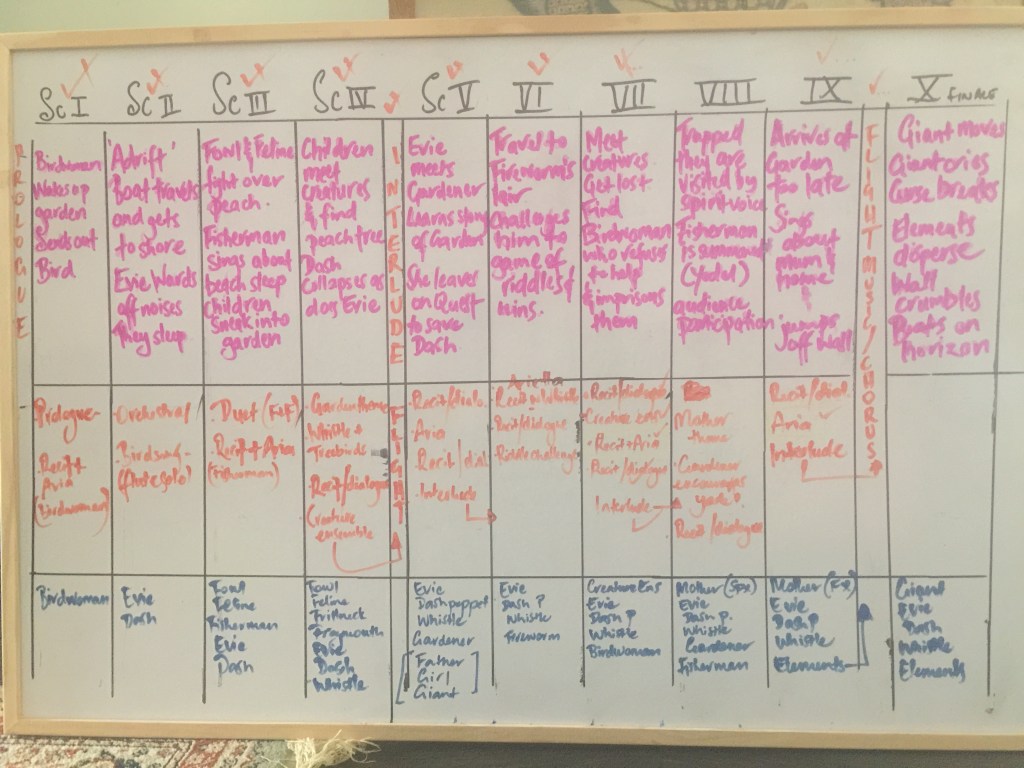 Sc I
Sc II
Sc III
Sc IV
Sc V
VI
VII
VIII
IX
X FINALE
PROLOGUE
Birdwoman
Wakes up
garden
Sends out
Bird
'Adrift'
Boat travels
and gets
to shore
Evie Wards
off noises
They sleep
Fowl & Feline
fight over
peach.
Fisherman
sings about
beach sleep
Children
sneak into
garden
Children
meet
creatures
& find
peach tree
Dash
collapses as
does Evie
INTERLUDE
FLIGHT
Evie
meets
Gardener
Learns story
of Garden
She leaves
on Quest
to save
Dash
Travel to
Fireworm's
lair
Challenges
him to
game of
riddles &
wins.
Meet
creatures
Get lost
Find
Birdwoman
who refuses
to help
& imprisons
them
Trapped
they are
visited by
spirit voice
Fisherman
is summoned
(Yodel)
audience
participation
Arrives at
Garden
too late
Sings
about
mum &
home
&
jumps
off wall
FLIGHT MUSIC/CHORUS
Giant moves
Giant cries
Curse breaks
Elements
disperse
Wall
crumbles
Boats on
horizon
Prologue
Recit +
Aria
(Birdwoman)
Orchestral
Birdsong
(flute solo)
Duet (F+F)
Recit + Aria
(Fisherman)
Garden theme
Whistle +
Treebirds
Recit/dialogue
Creature
ensemble
Recit/dialo.
Aria
Recit/dial
Interlude
Arietta
Recit/dialogue
Riddle challenge
Recit/dialogue
Creature ens
Recit + Aria
Recit/dialogue
Interlude
Mother
theme
Gardener
encourages
yodel
Recit/dialogue
Recit/dial.
Aria
Interlude
Birdwoman
Evie
Dash
Fowl
Feline
Fisherman
Evie
Dash
Fowl
Feline
Frillneck
Frogmouth
Evie
Dash
Whistle
Evie
Dash puppet
Whistle
Gardener
[Father
Girl
Giant]
Evie
Dash P
Whistle
Fireworm
Creature Ens
Evie
Dash P
Whistle
Birdwoman
Mother (Spx)
Evie
Dash P.
Whistle
Gardener
Fisherman
Mother (FX)
Evie
Dash P
Whistle
Elements
Giant
Evie
Dash
Whistle
Elements